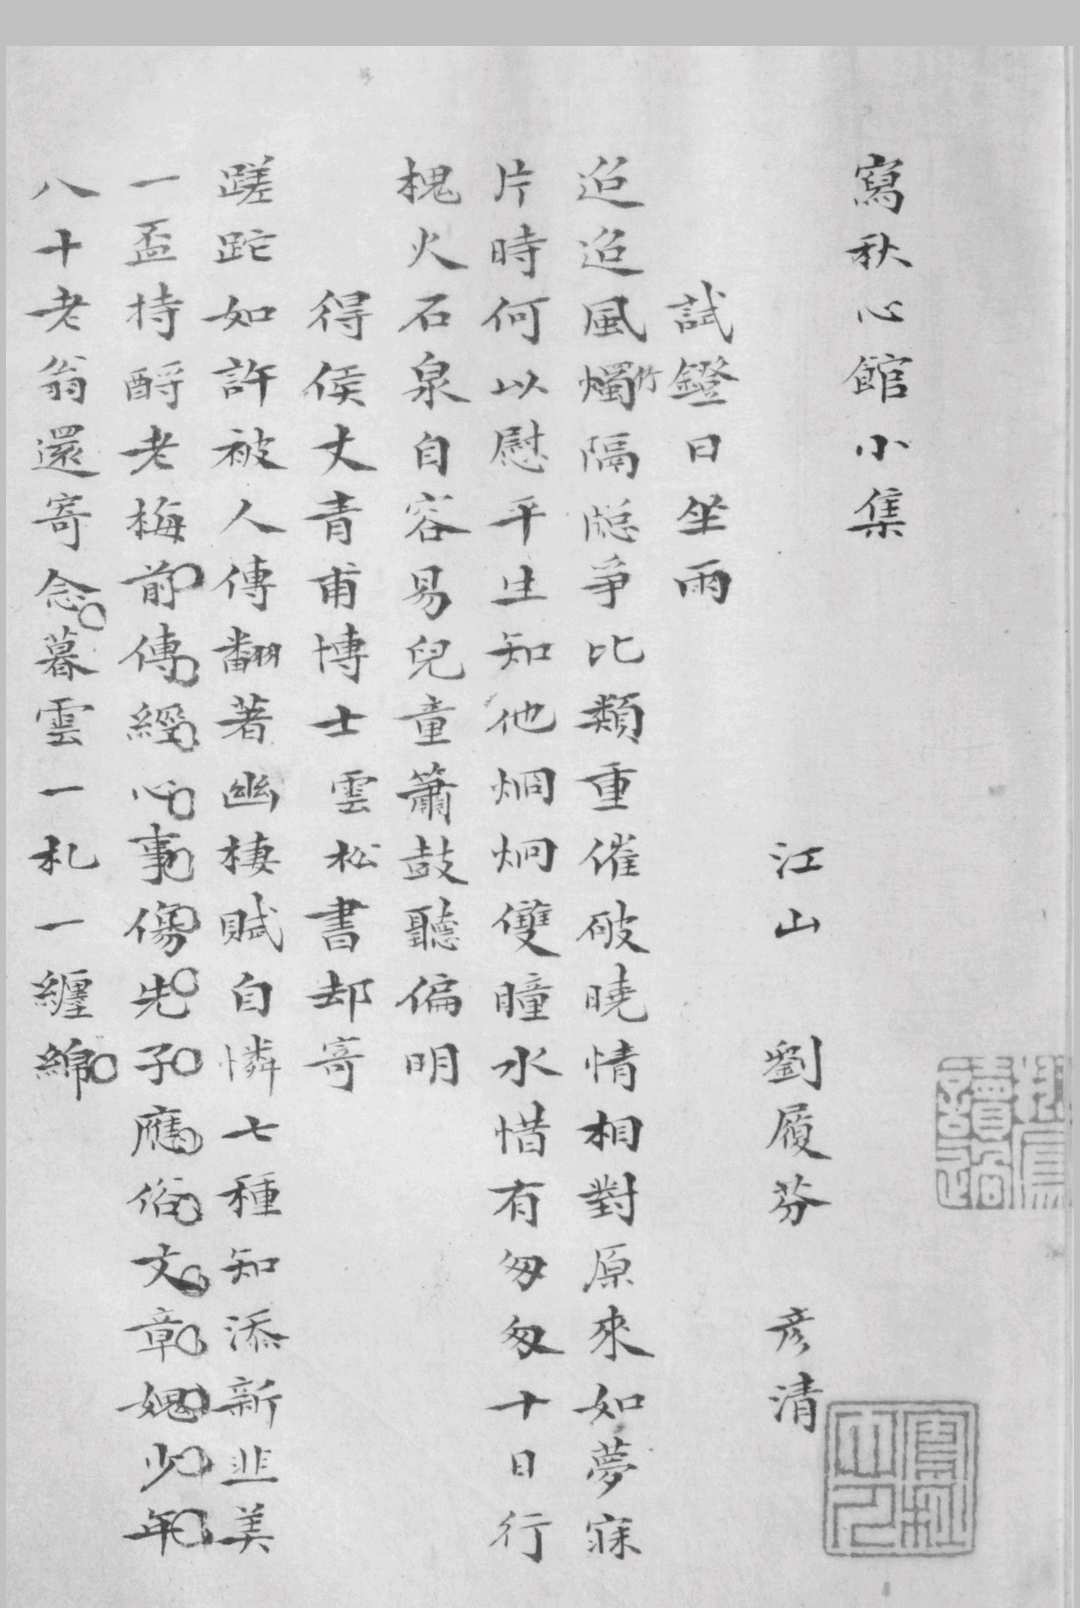 寫秋心館小集
江山　劉履芬　彥清
試鐙日坐雨
迢迢風燭隔牕爭比類重催破曉情相對原來如夢寐
竹
片時何以慰平生知他炯炯雙瞳水惜有匆匆十日行
槐火石泉自容易兒童簫鼓聽偏明
得侯丈青甫博士雲松書却寄
蹉跎如許被人傳翻著幽棲賦自憐七種知添新韭美
一盃持酹老梅前傳經心事傷先子應俗文章媿少年
八十老翁還寄念暮雲一札一纏綿